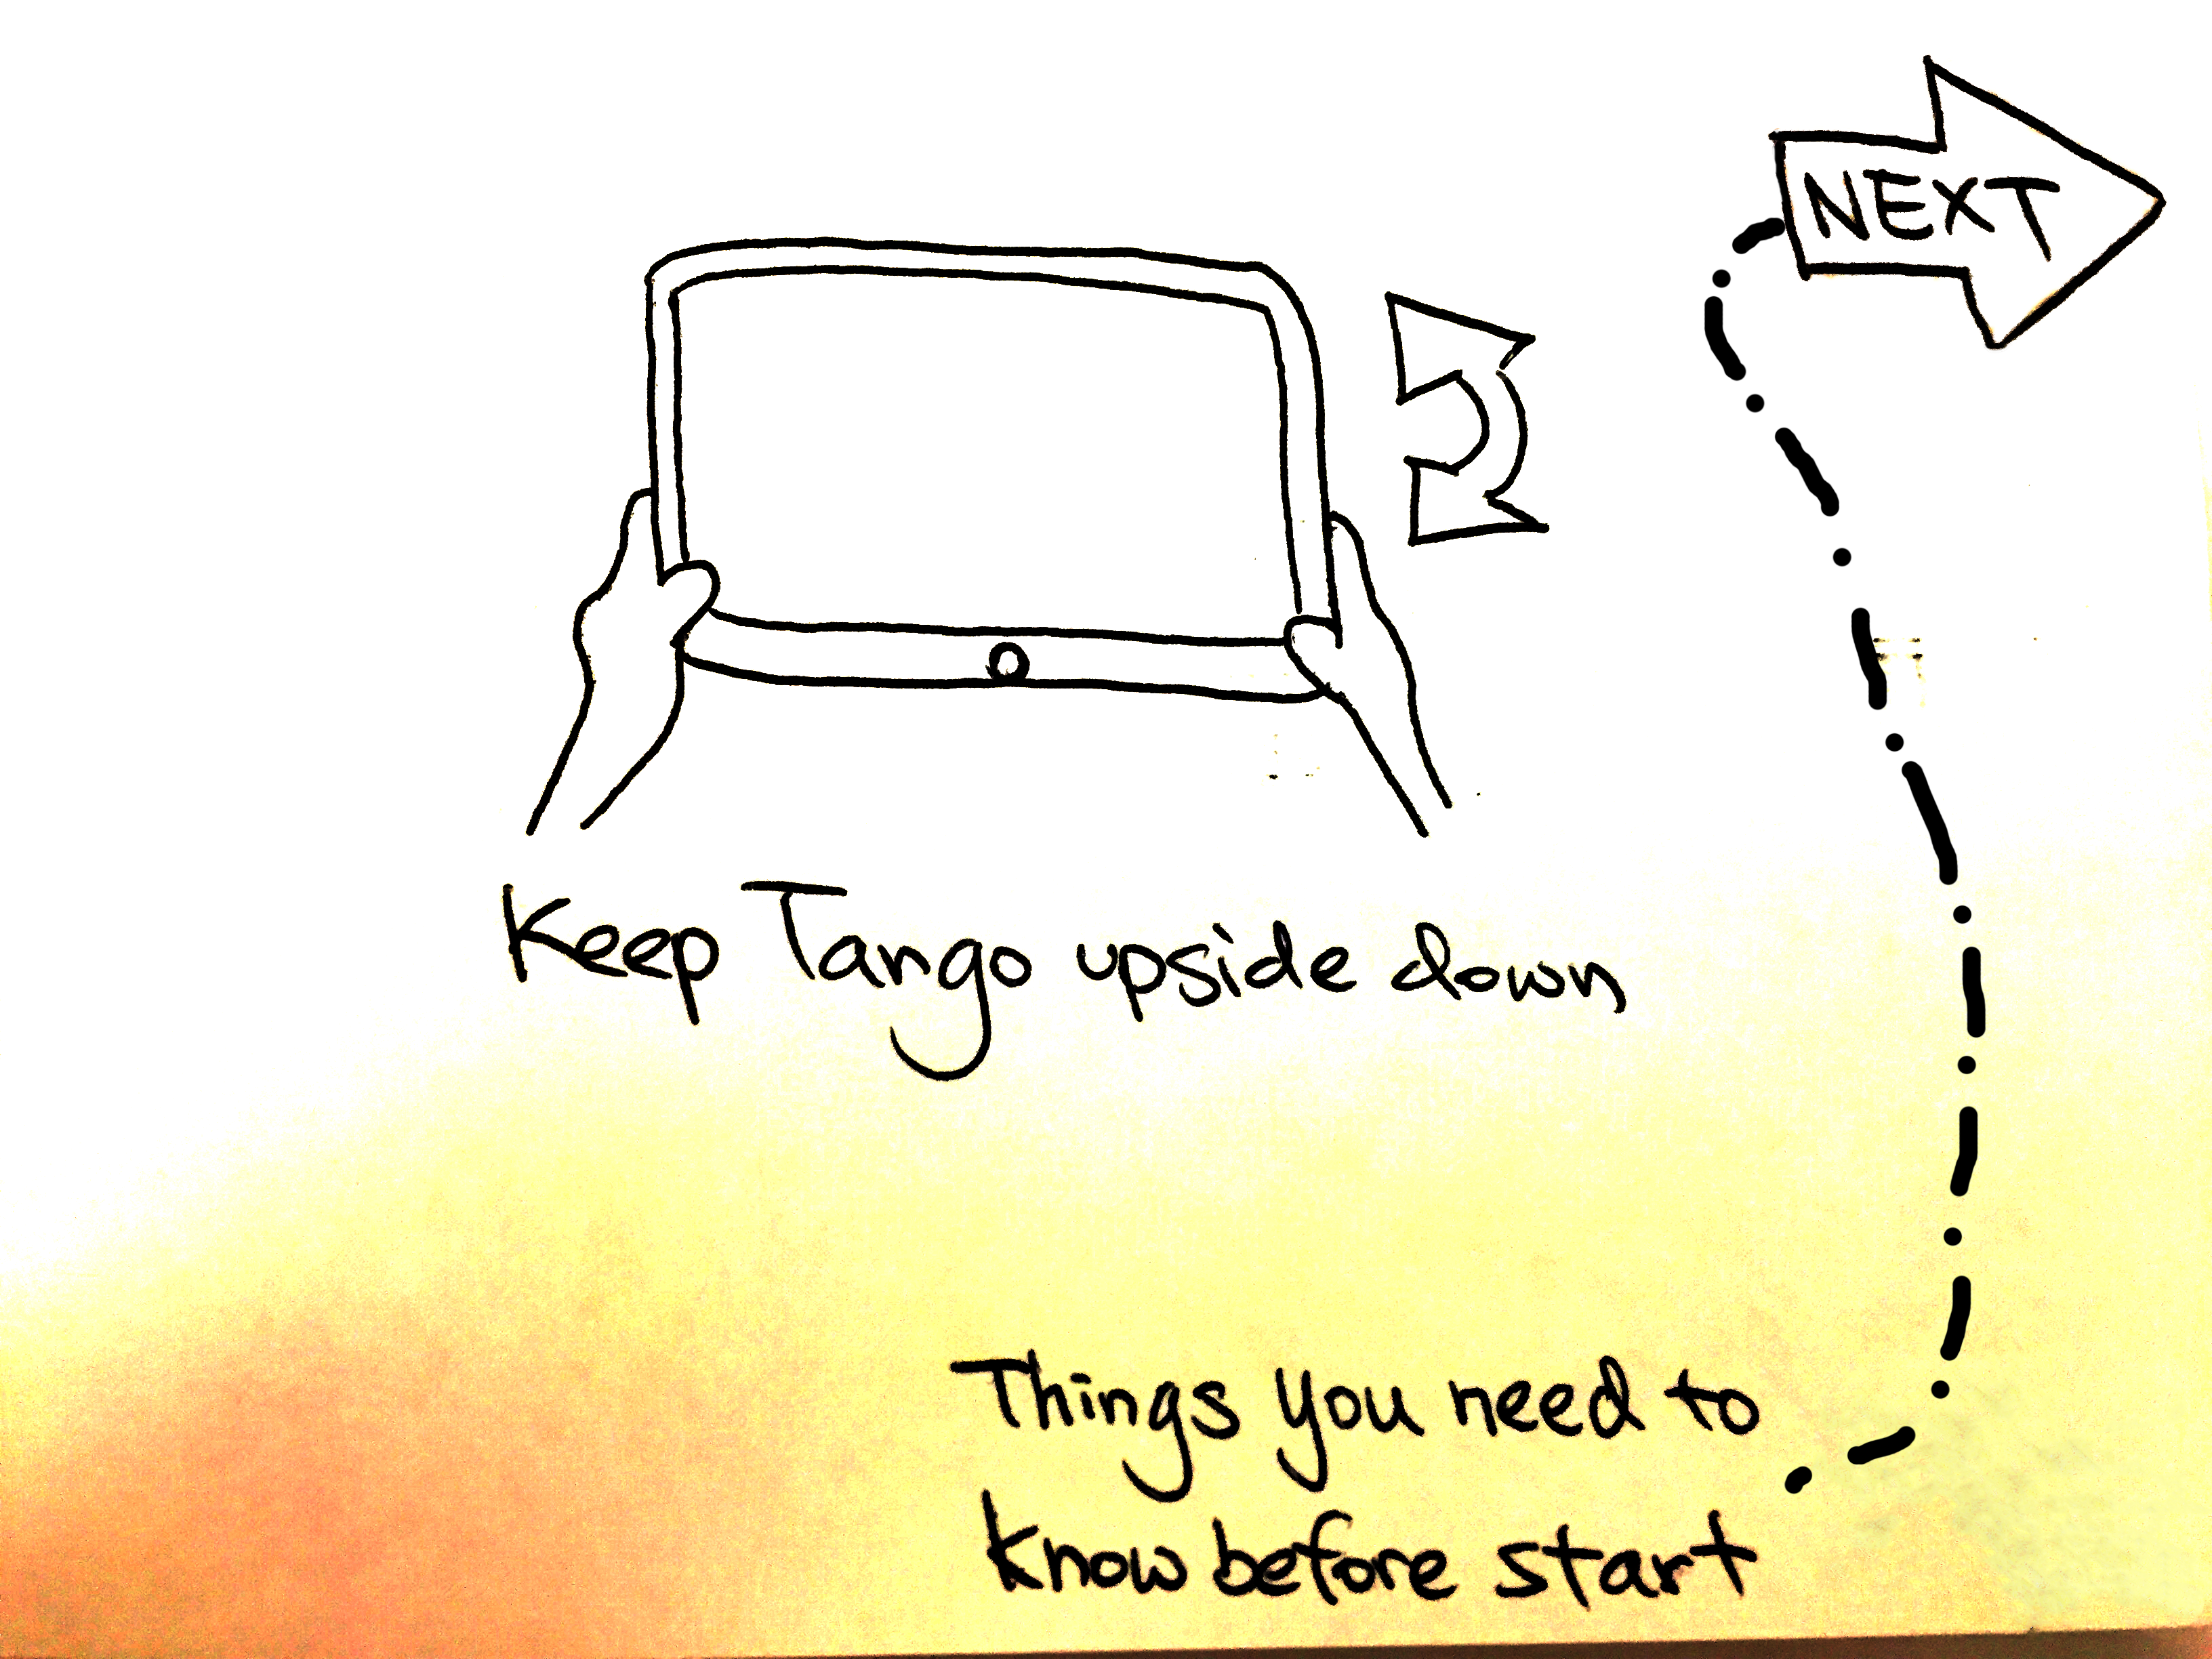 NEXT
Keep Tango upside down
Things you need to
know before start